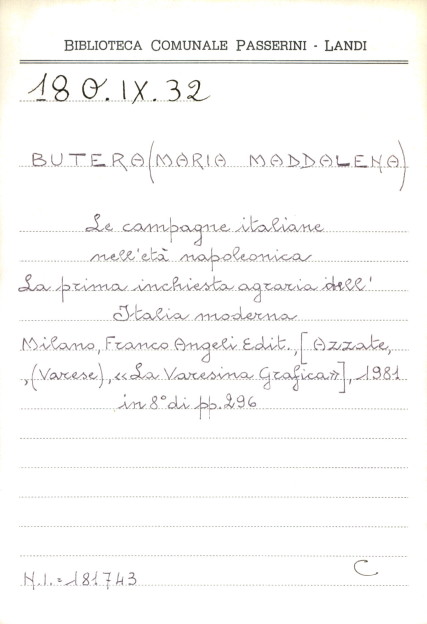 BIBLIOTECA COMUNALE PASSERINI - LANDI
180.IX.32
BUTERA (MARIA MADDALENA)
Le campagne italiane
nell'età napoleonica
La prima inchiesta agraria dell'
Italia moderna
Milano, Franco Angeli Edit., [Azzate,
,(Varese), «La Varesina Grafica»], 1981
in 8° di pp. 296
N.I. = 181743
C